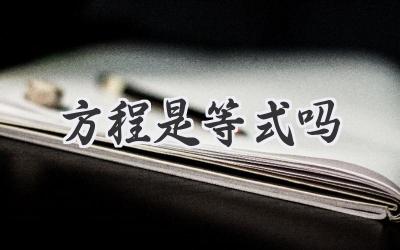 方程是等式吗